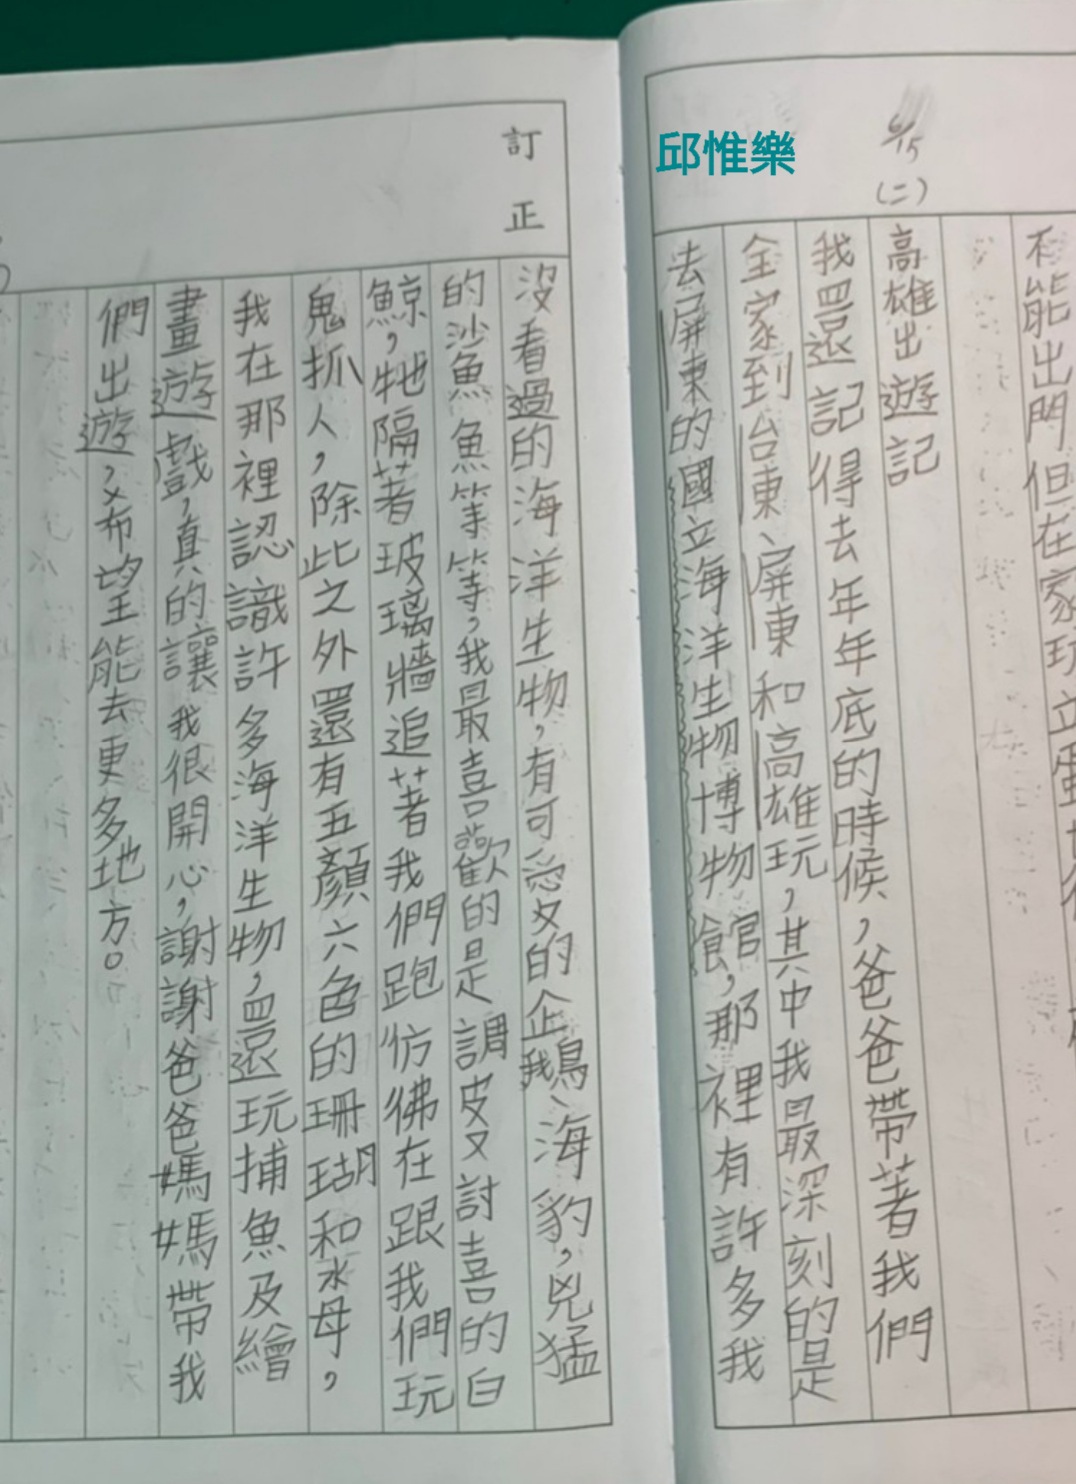 邱惟樂
6/15
(二)
不能出門但在家玩立蛋
高雄出遊記
我還記得去年年底的時候，爸爸帶著我們
全家到台東、屏東和高雄玩，其中我最深刻的是
去屏東的國立海洋生物博物館，那裡有許多我
訂正
沒看過的海洋生物，有可愛的企鵝、海豹，兇猛
的沙魚魚等等，我最喜歡的是調皮又討喜的白
鯨，牠隔著玻璃牆追著我們跑彷彿在跟我們玩
鬼抓人，除此之外還有五顏六色的珊瑚和水母，
我在那裡認識許多海洋生物，還玩捕魚及繪
畫遊戲，真的讓我很開心，謝謝爸爸媽媽帶我
們出遊，希望能去更多地方。